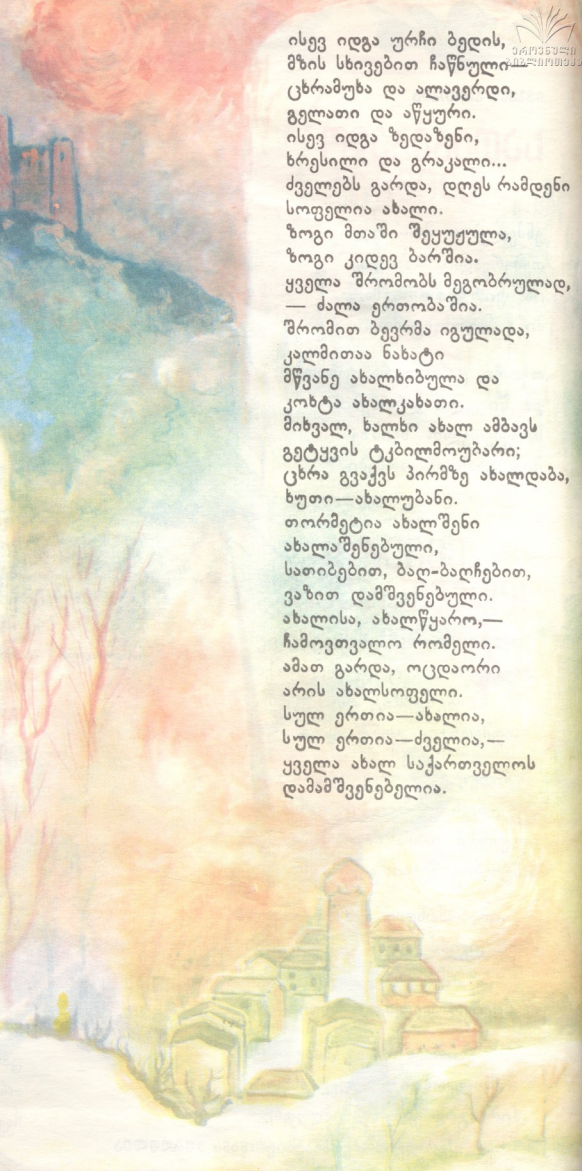 ეროვნული
ბიბლიოთეკა
ისევ იდგა ურჩი ბედის,
მზის სხივებით ჩაწნული—
ცხრამუხა და ალავერდი,
გელათი და აწყური.
ისევ იდგა ზედაზენი,
ხრესილი და გრაკალი...
ძველებს გარდა, დღეს რამდენი
სოფელია ახალი.
ზოგი მთაში შეყუჟულა,
ზოგი კიდევ ბარშია.
ყველა შრომობს მეგობრულად,
— ძალა ერთობაშია.
შრომით ბევრმა იგულადა,
კალმითაა ნახატი
მწვანე ახალხიბულა და
კოხტა ახალკახათი.
მიხვალ, ხალხი ახალ ამბავს
გეტყვის ტკბილმოუბარი;
ცხრა გვაქვს პირმზე ახალდაბა,
ხუთი—ახალუბანი.
თორმეტია ახალშენი
ახალაშენებული,
სათიბებით, ბაღ-ბაღჩებით,
ვაზით დამშვენებული.
ახალისა, ახალწყარო,—
ჩამოვთვალო რომელი.
ამათ გარდა, ოცდაორი
არის ახალსოფელი.
სულ ერთია—ახალია,
სულ ერთია—ძველია,—
ყველა ახალ საქართველოს
დამამშვენებელია.